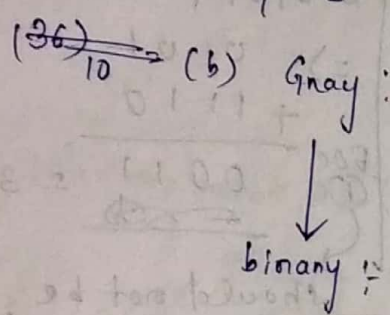 (36)10 (b) Gray :
↓
binary :-